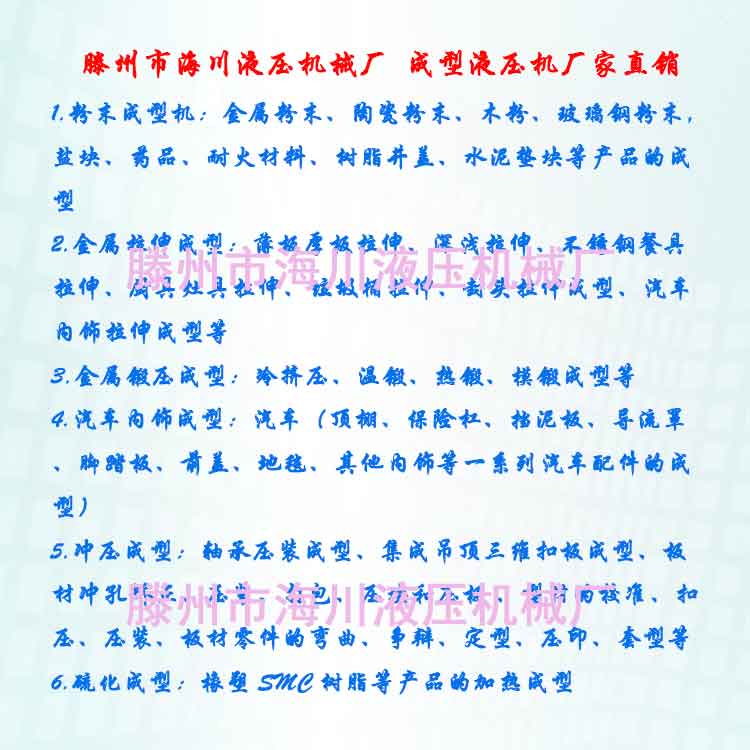 滕州市海川液压机械厂 成型液压机厂家直销
1.粉末成型机：金属粉末、陶瓷粉末、木粉、玻璃钢粉末，
盐块、药品、耐火材料、树脂井盖、水泥垫块等产品的成
型
2.金属拉伸成型：薄板厚板拉伸、深浅拉伸、不锈钢餐具
滕州市海川液压机械厂
拉伸、厨具灶具拉伸、垃圾桶拉伸、封头拉伸成型、汽车
内饰拉伸成型等
3.金属锻压成型：冷挤压、温锻、热锻、模锻成型等
4.汽车内饰成型：汽车（顶棚、保险杠、挡泥板、导流罩
、脚踏板、前盖、地毯、其他内饰等一系列汽车配件的成
型）
5.冲压成型：轴承压装成型、集成吊顶三维扣板成型、板
材冲孔 打包、压 的校准、扣
滕州市海川液压机械厂
压、压装、板材零件的弯曲、争辩、定型、压印、套型等
6.硫化成型：橡塑 SMC 树脂等产品的加热成型